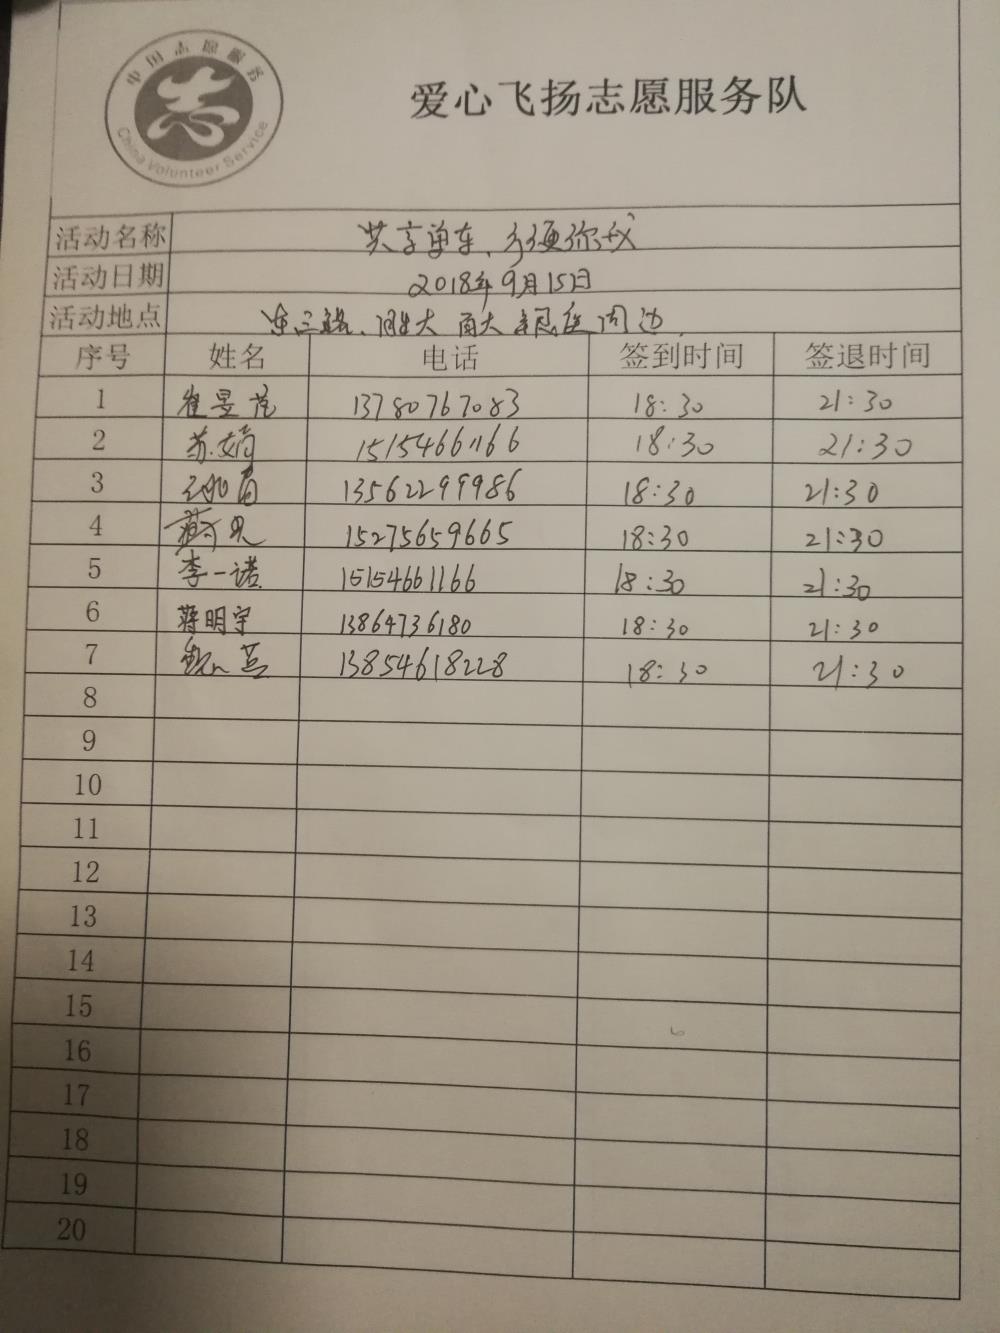 中国志愿服务
志
China Volunteer Service
爱心飞扬志愿服务队
活动名称 共享单车、方便你我
活动日期 2018年9月15日
活动地点 东三路、周边
序号 姓名 电话 签到时间 签退时间
1 崔昱 13780767083 18:30 21:30
2 苏娟 15154661166 18:30 21:30
3 13562299986 18:30 21:30
4 15275659665 18:30 21:30
5 李一诺 15154661166 18:30 21:30
6 蒋明宇 13864736180 18:30 21:30
7 13854618228 18:30 21:30
8
9
10
11
12
13
14
15
16
17
18
19
20